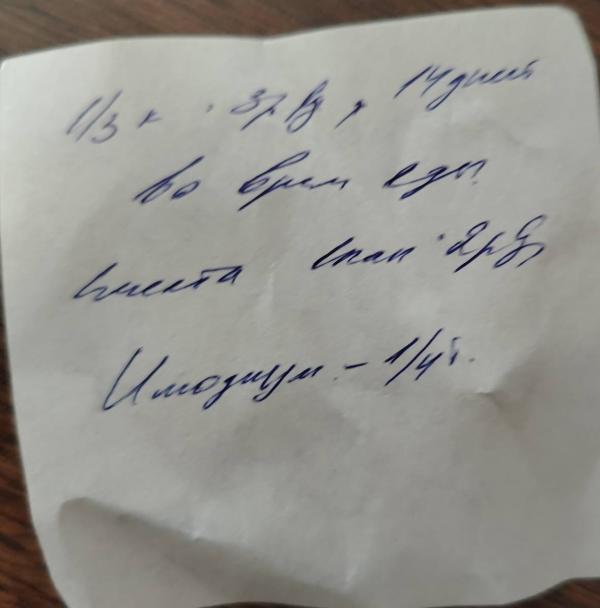 1/3 к · 3р/д, 14 дней
во врем еды
смекта 1 пак · 2р/д
Имодиум - 1/4 т.